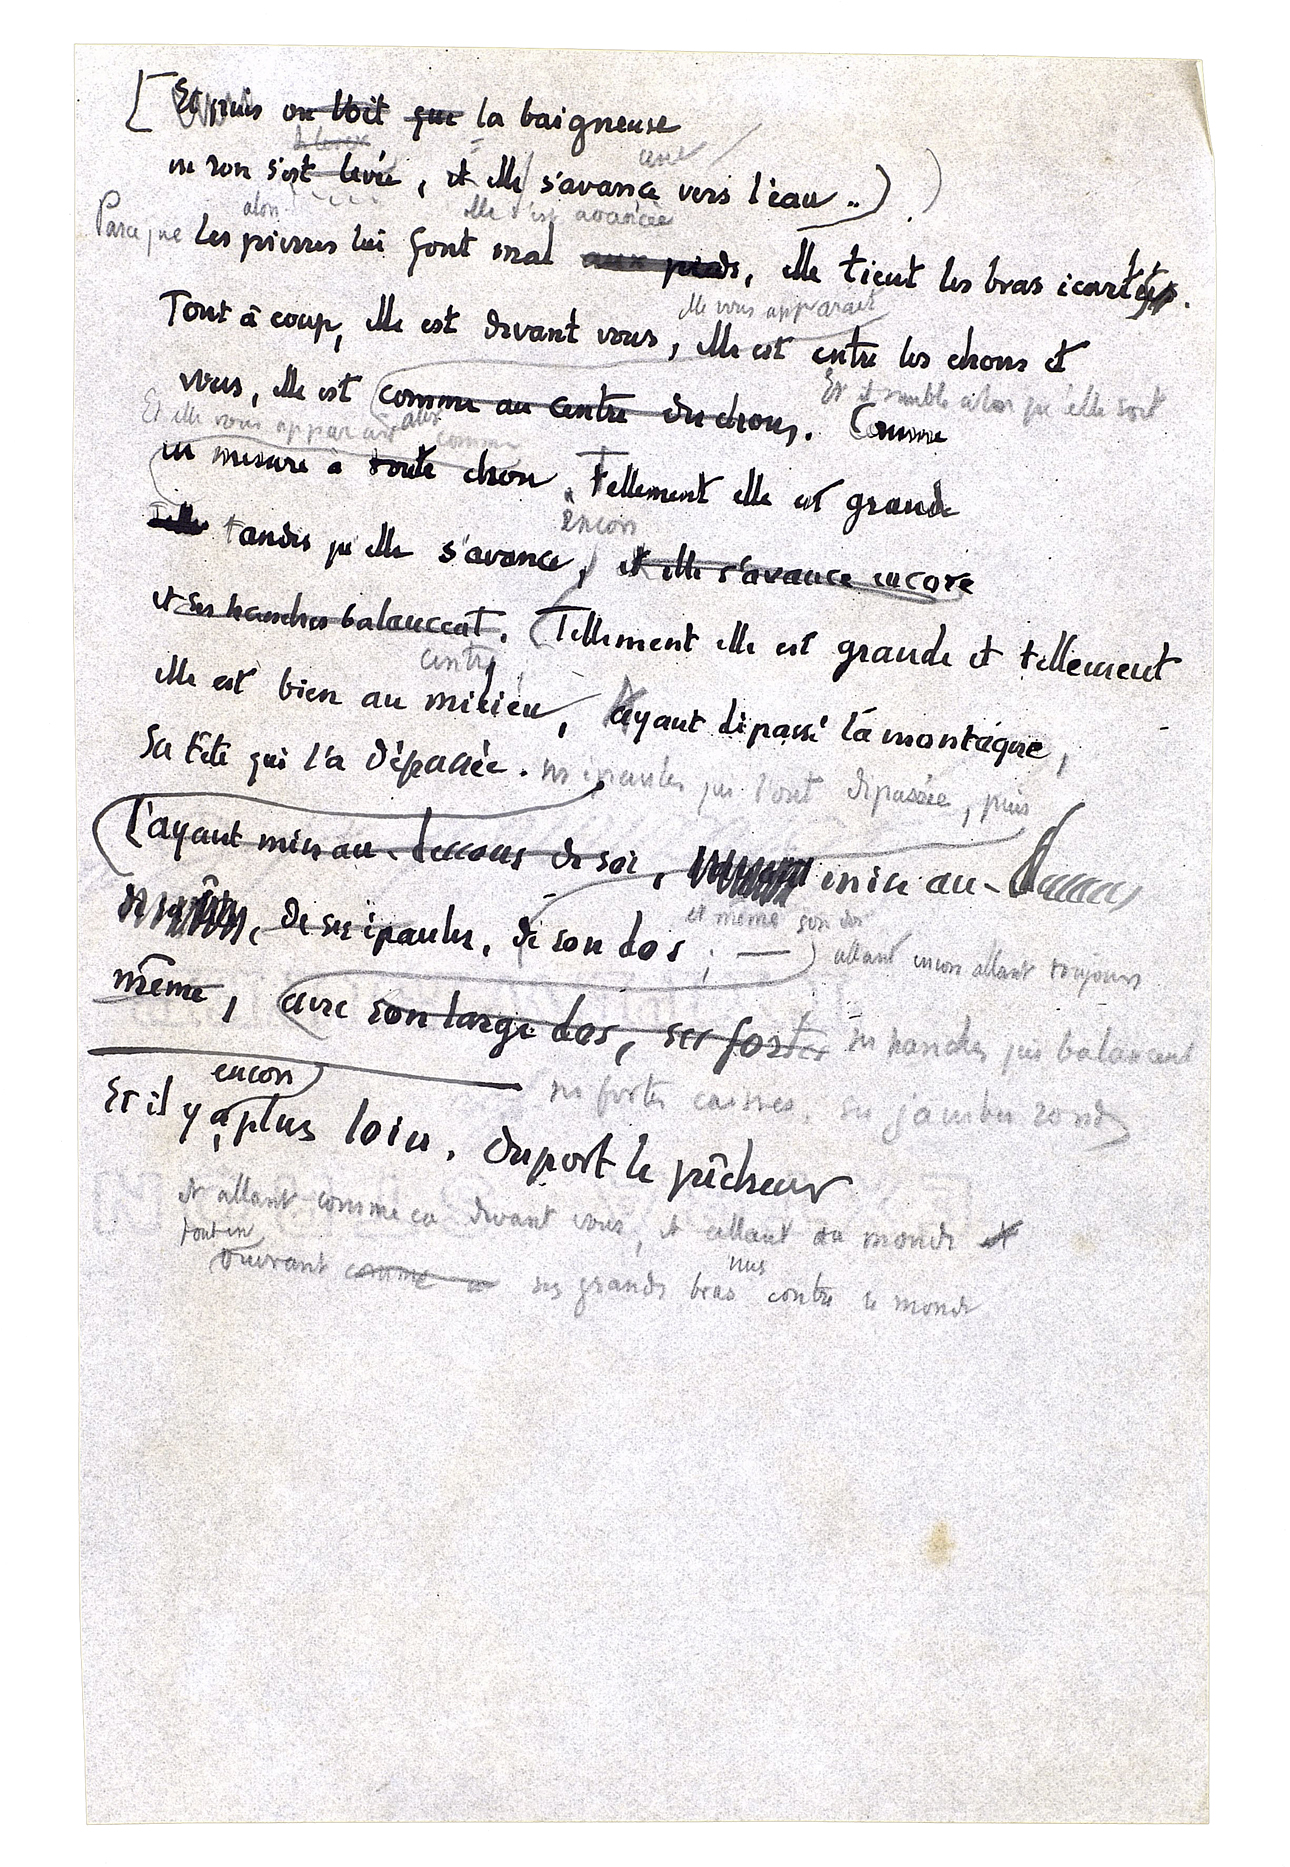 [Et puis on voit que la baigneuse
se lever
ne von s'est levée, et elle s'avance vers l'eau ..) )
alors elle s'est avancée
Parce que les pierres lui font mal aux pieds, elle tient les bras écartés.
elle vous apparaît
Tout à coup, elle est devant vous, elle est entre les choses et
Et il semble alors qu'elle soit
vous, elle est comme au centre des choses. Comme
Et elle vous apparaît alors comme
en mesure à toute chose. Tellement elle est grande
encore
Telle tandis qu'elle s'avance, et elle s'avance encore
et ses hanches balancent. (Tellement elle est grande et tellement
centre
elle est bien au milieu, ayant dépassé la montagne,
Sa tête qui l'a dépassée. ses épaules qui l'ont dépassée, puis
L'ayant mise au-dessous de soi, mise au-dessous
de sa tête, de ses épaules, de son dos ; —)
et même son dos
allant encore allant toujours
même, avec son large dos, ses fortes ses hanches qui balancent
ses fortes cuisses, ses jambes rondes
encore
Et il y a plus loin, du port le pêcheur
et allant comme ça devant vous, et allant au monde et
tout en
ouvrant comme ses grands bras nus contre le monde